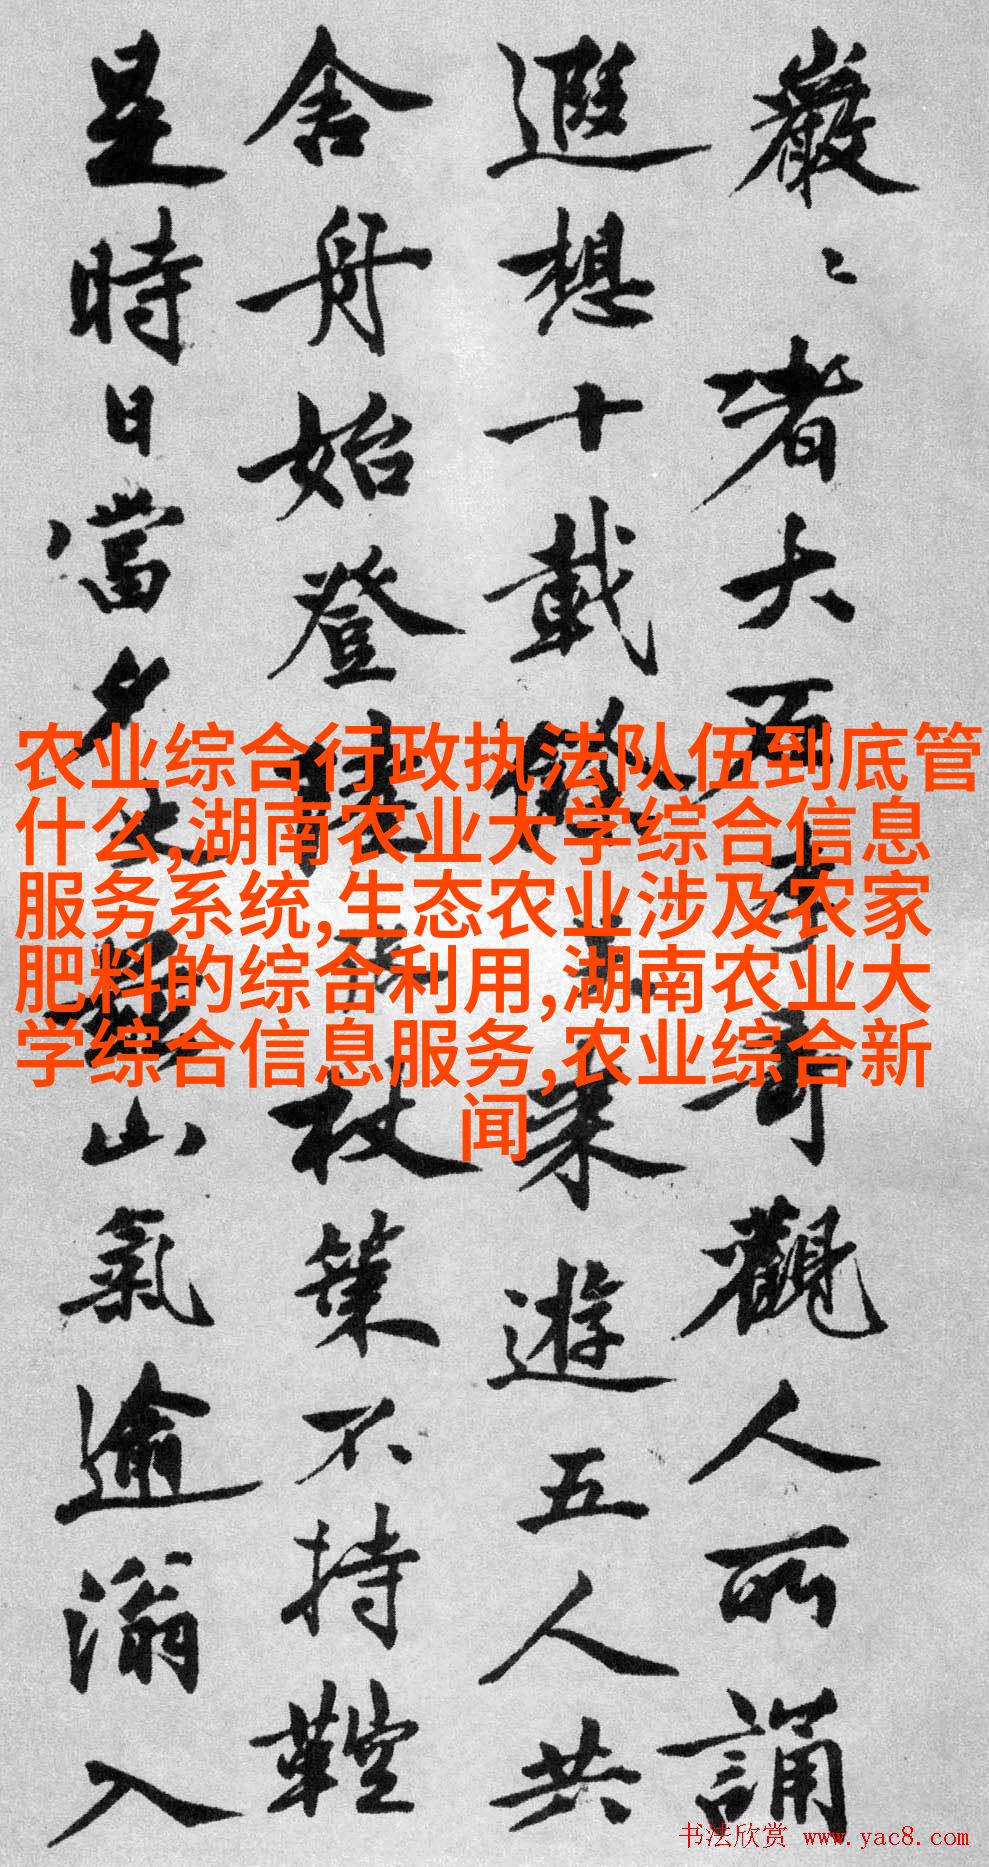 巖〻者大石
奇觀人所誦
遐想十載
來遊五人共
舍舟始登
杖策不持鞚
是時日當夕
山氣逾滃入
农业综合行政执法队伍到底管
什么,湖南农业大学综合信息
服务系统,生态农业涉及农家
肥料的综合利用,湖南农业大
学综合信息服务,农业综合新
闻
书法欣赏 www.yac8.com